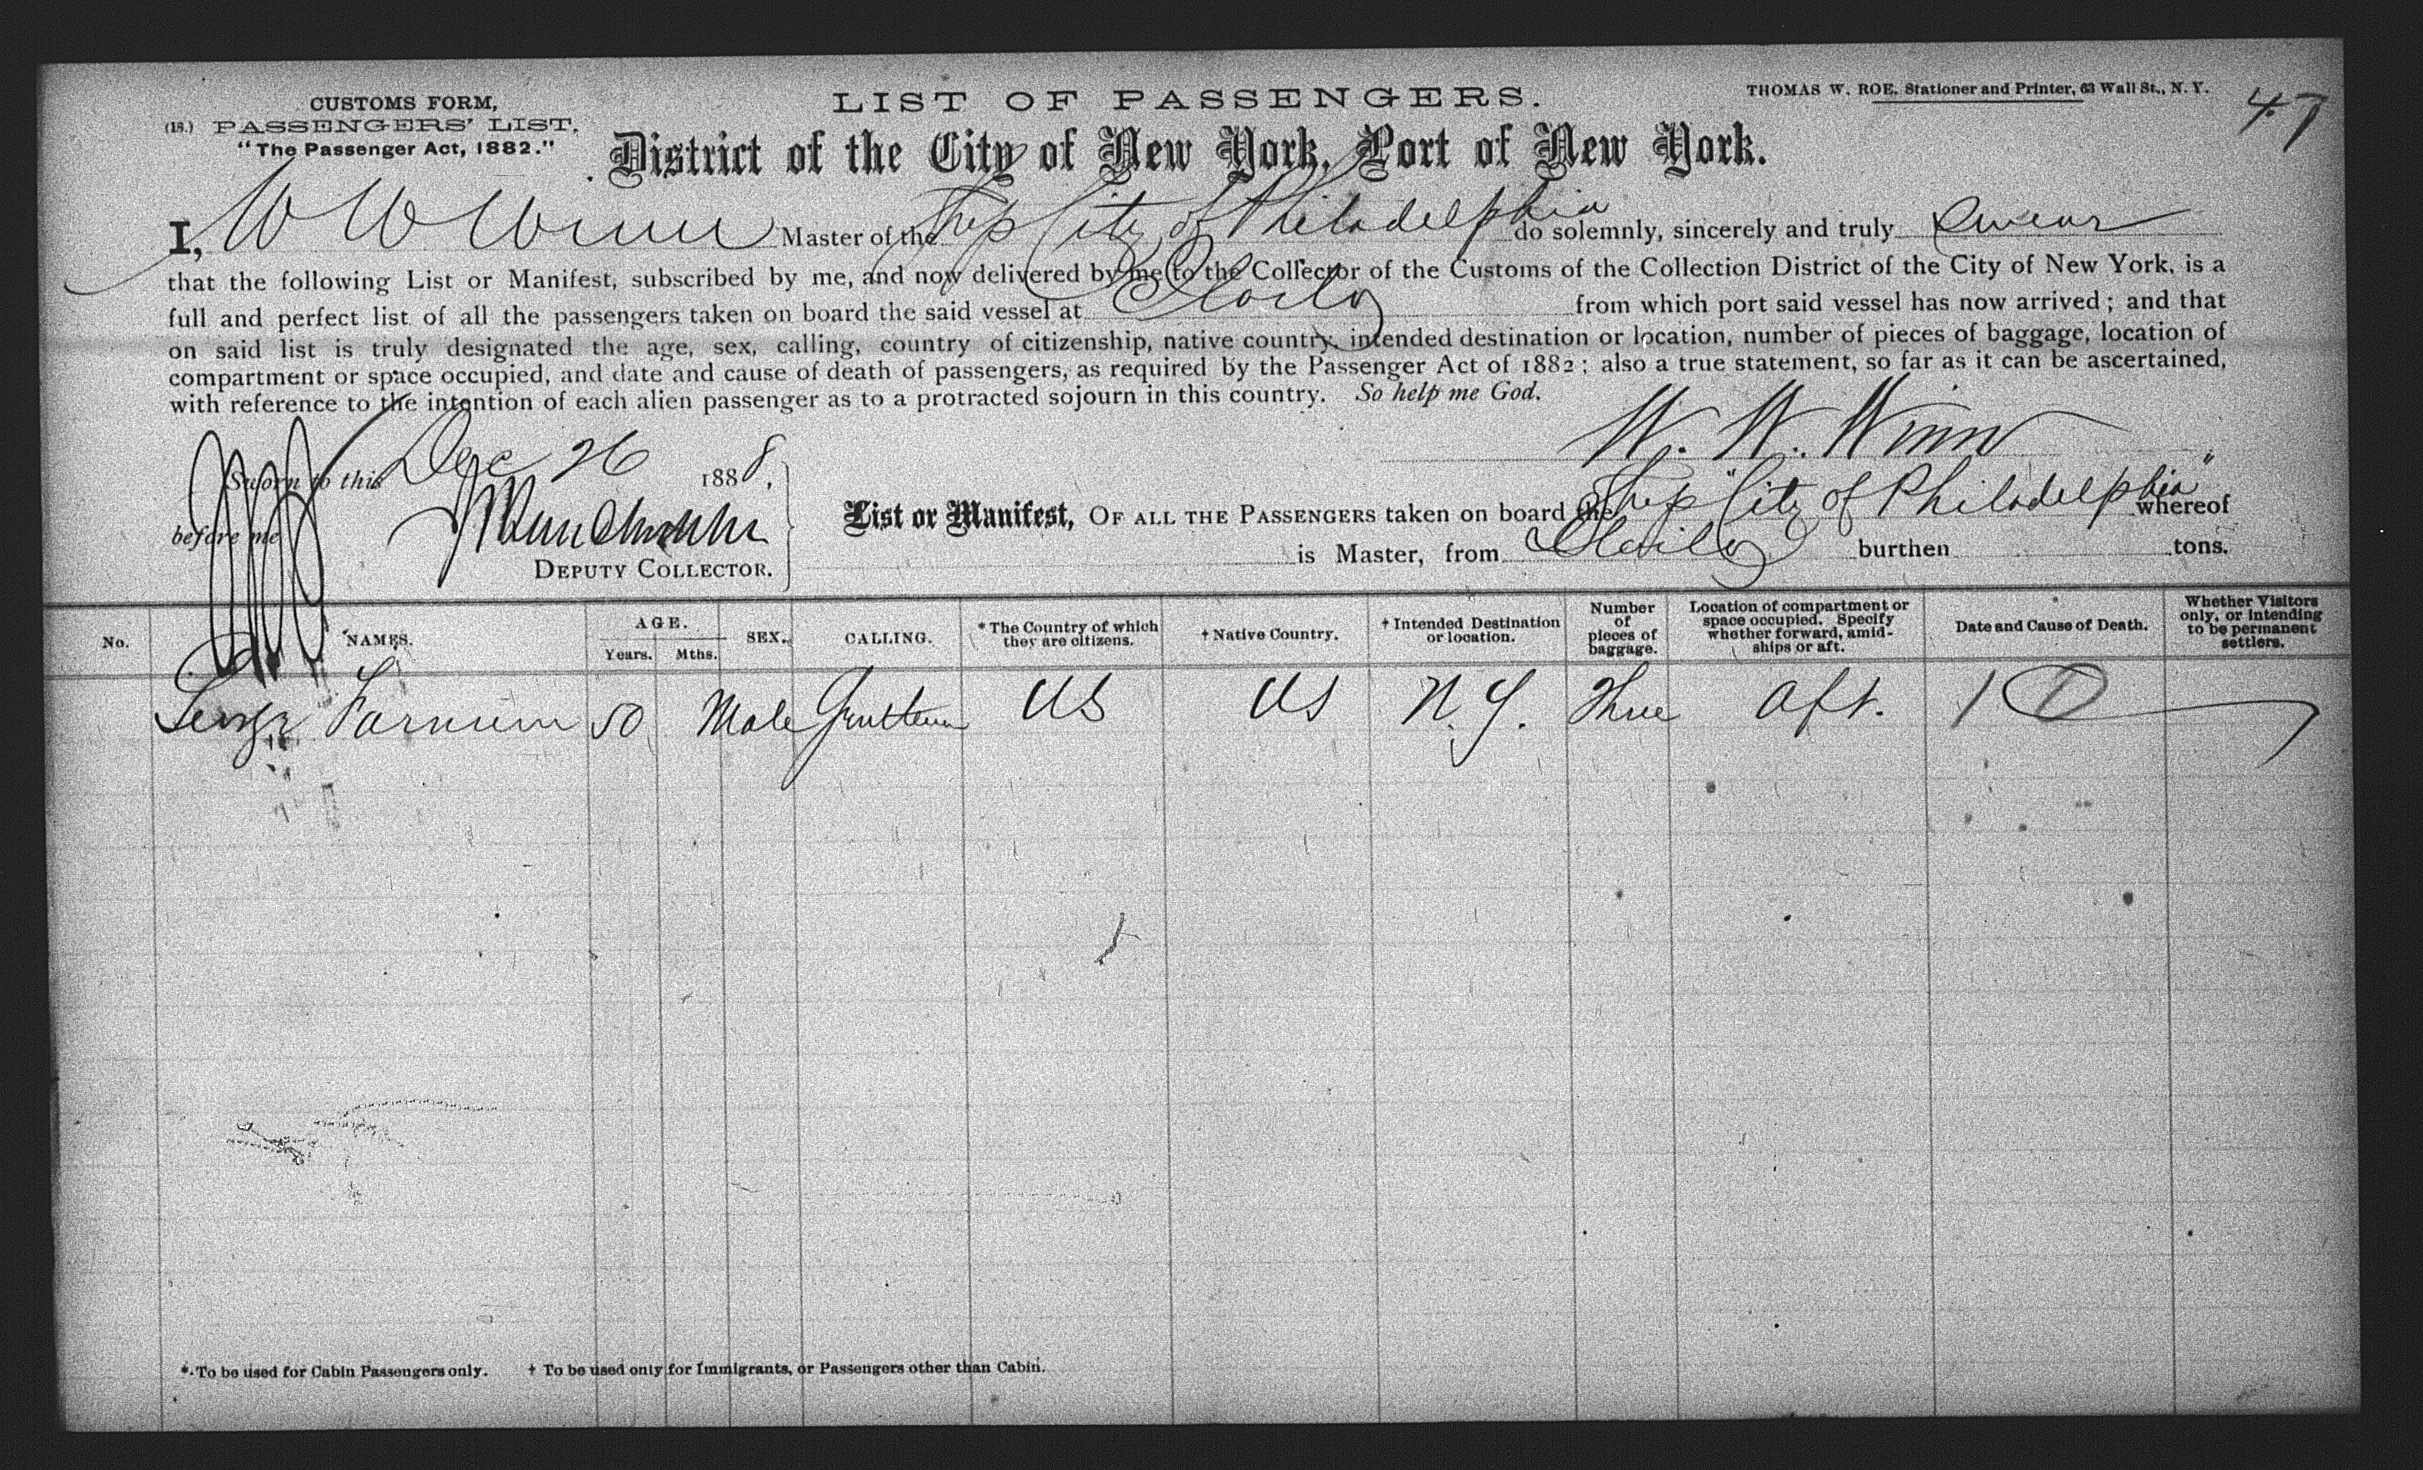 CUSTOMS FORM,
(18.) PASSENGERS' LIST,
"The Passenger Act, 1882."
LIST OF PASSENGERS.
THOMAS W. ROE, Stationer and Printer, 63 Wall St., N. Y.
47
District of the City of New York, Port of New York.
I, W W Winn Master of the Ship City of Philadelphia do solemnly, sincerely and truly swear
that the following List or Manifest, subscribed by me, and now delivered by me to the Collector of the Customs of the Collection District of the City of New York, is a
full and perfect list of all the passengers taken on board the said vessel at Iloilo from which port said vessel has now arrived; and that
on said list is truly designated the age, sex, calling, country of citizenship, native country, intended destination or location, number of pieces of baggage, location of
compartment or space occupied, and date and cause of death of passengers, as required by the Passenger Act of 1882; also a true statement, so far as it can be ascertained,
with reference to the intention of each alien passenger as to a protracted sojourn in this country. So help me God.
W. W. Winn
Sworn to this Dec 26 1888,
before me
DEPUTY COLLECTOR.
List or Manifest, OF ALL THE PASSENGERS taken on board the Ship "City of Philadelphia" whereof
is Master, from Iloilo burthen tons.
No. NAMES. AGE. Years. Mths. SEX. CALLING. * The Country of which they are citizens. † Native Country. † Intended Destination or location. Number of pieces of baggage. Location of compartment or space occupied. Specify whether forward, amidships or aft. Date and Cause of Death. Whether Visitors only, or intending to be permanent settlers.
George Farnum 50 Male Gentleman US US N.Y. Three Aft. 1
*. To be used for Cabin Passengers only. † To be used only for Immigrants, or Passengers other than Cabin.